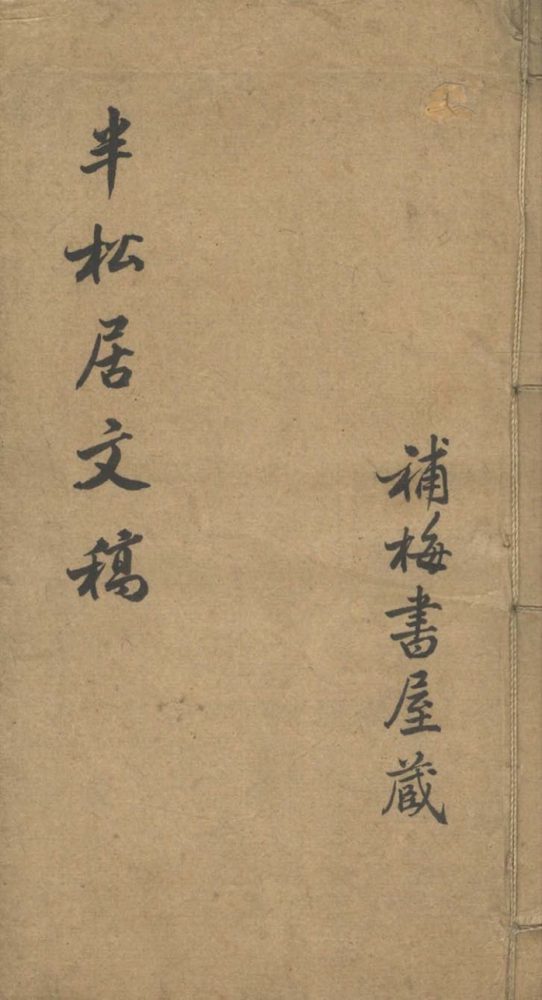 補梅書屋蔵
半松居文稿